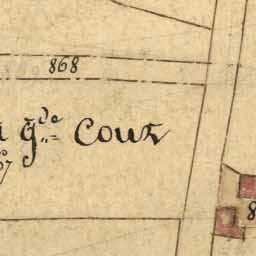 868
gde Cour
8